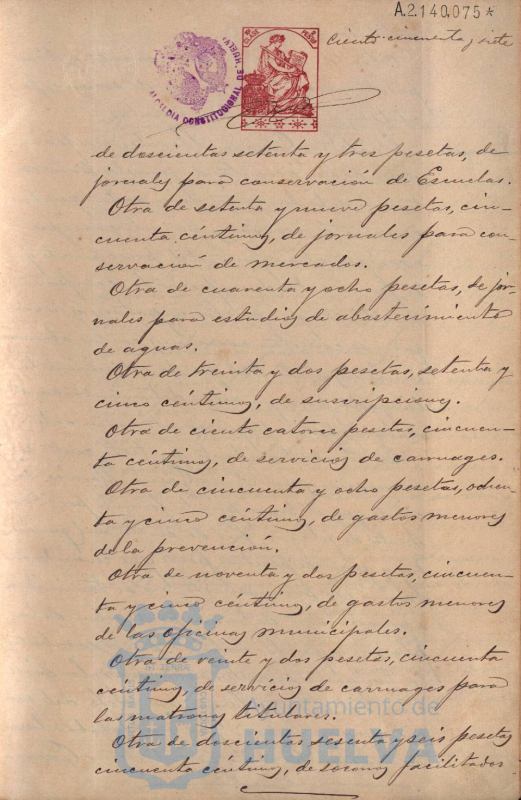 A.2.140.075*
Ciento cincuenta y siete
ALCALDIA CONSTITUCIONAL DE HUELVA
de doscientas setenta y tres pesetas, de
jornales para conservación de Escuelas.
Otra de setenta y nueve pesetas, cin-
cuenta céntimos, de jornales para con-
servación de mercados.
Otra de cuarenta y ocho pesetas, de jor-
nales para estudios de abastecimiento
de aguas.
Otra de treinta y dos pesetas, setenta y
cinco céntimos, de suscripciones.
Otra de ciento catorce pesetas, cincuen-
ta céntimos, de servicios de carruages.
Otra de cincuenta y ocho pesetas, ochen-
ta y cinco céntimos, de gastos menores
de la prevención.
Otra de noventa y dos pesetas, cincuen-
ta y cinco céntimos, de gastos menores
de las oficinas municipales.
Otra de veinte y dos pesetas, cincuenta
céntimos, de servicios de carruages para
las matronas titulares.
Otra de doscientas sesenta y seis pesetas
cincuenta céntimos, de socorros facilitados
Ayuntamiento de
HUELVA